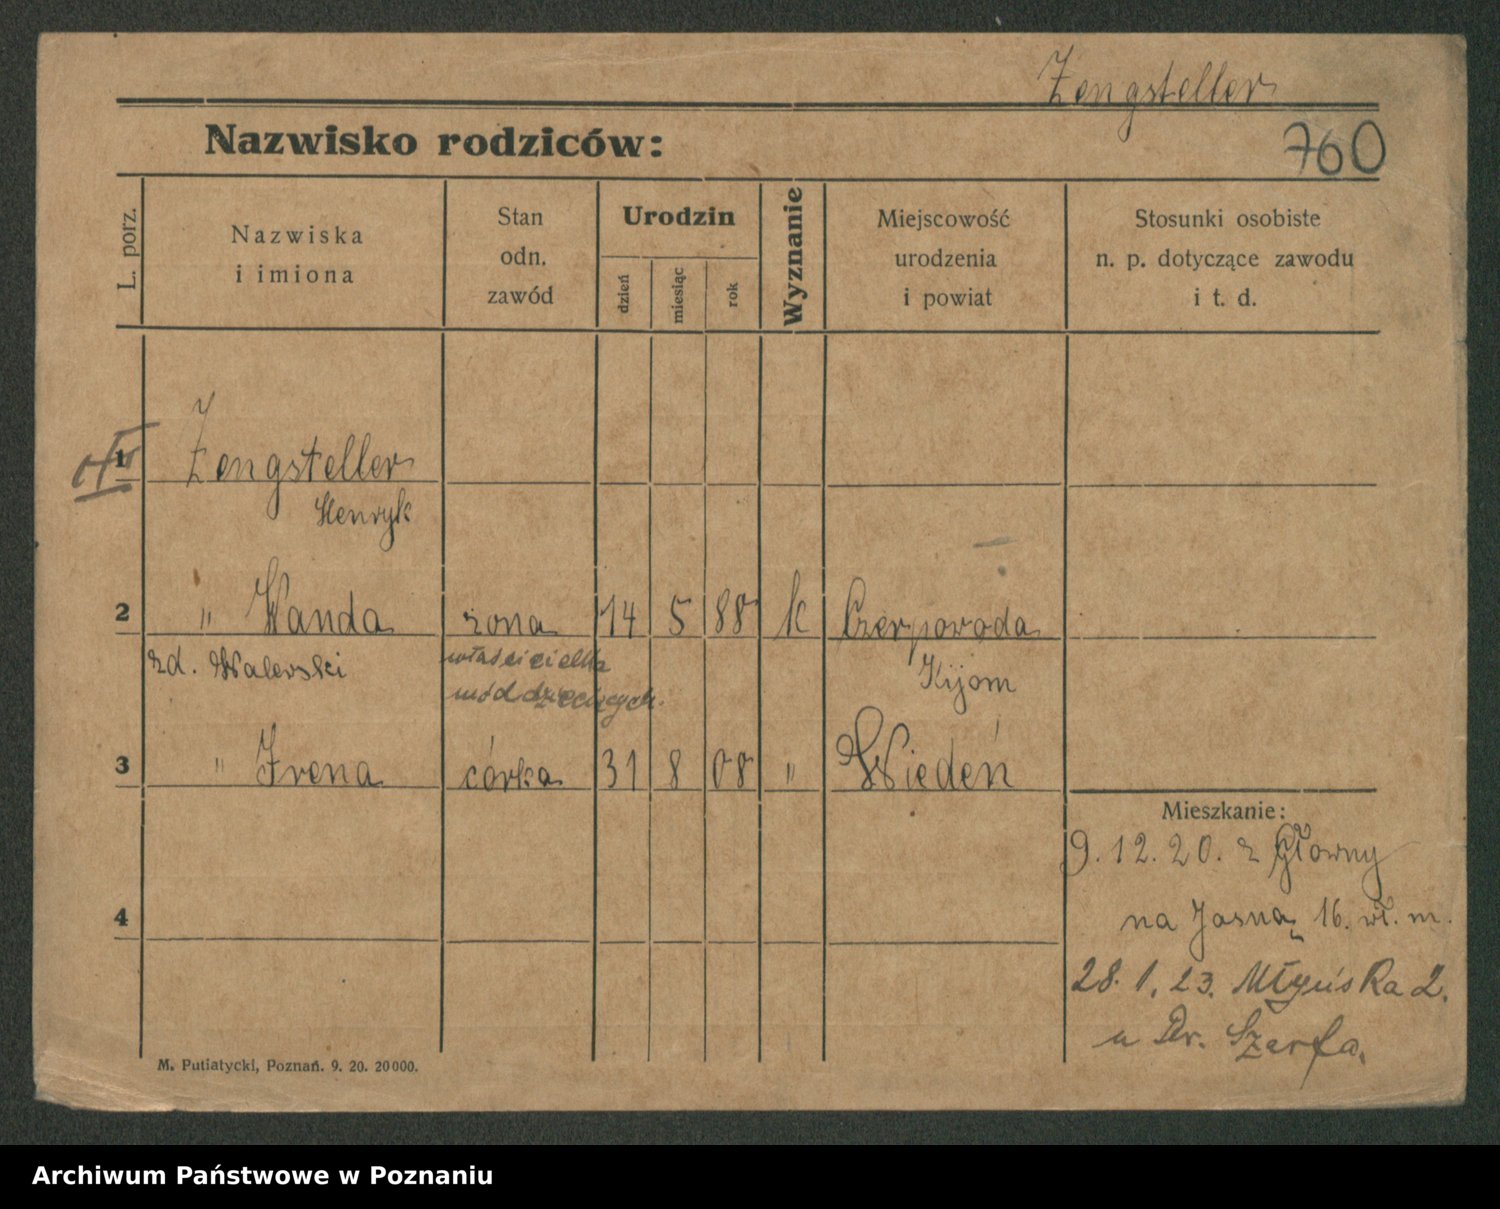 Zengsteller
Nazwisko rodziców:
760
L. porz.
Nazwiska
i imiona
Stan
odn.
zawód
Urodzin
dzień
miesiąc
rok
Wyznanie
Miejscowość
urodzenia
i powiat
Stosunki osobiste
n. p. dotyczące zawodu
i t. d.
1
Zengsteller
Henryk
2 " Wanda żona 14 5 88 k Czerpowoda
zd. Walewski właścicielka Kijom
mód dziecięcych.
3 " Irena córka 31 8 08 " Wiedeń
Mieszkanie:
9.12.20. z Głowny
4
na Jasną 16. wł. m.
28.1.23. Młyńska 2.
u Dr. Szarfa.
M. Putiatycki, Poznań. 9. 20. 20000.
Archiwum Państwowe w Poznaniu